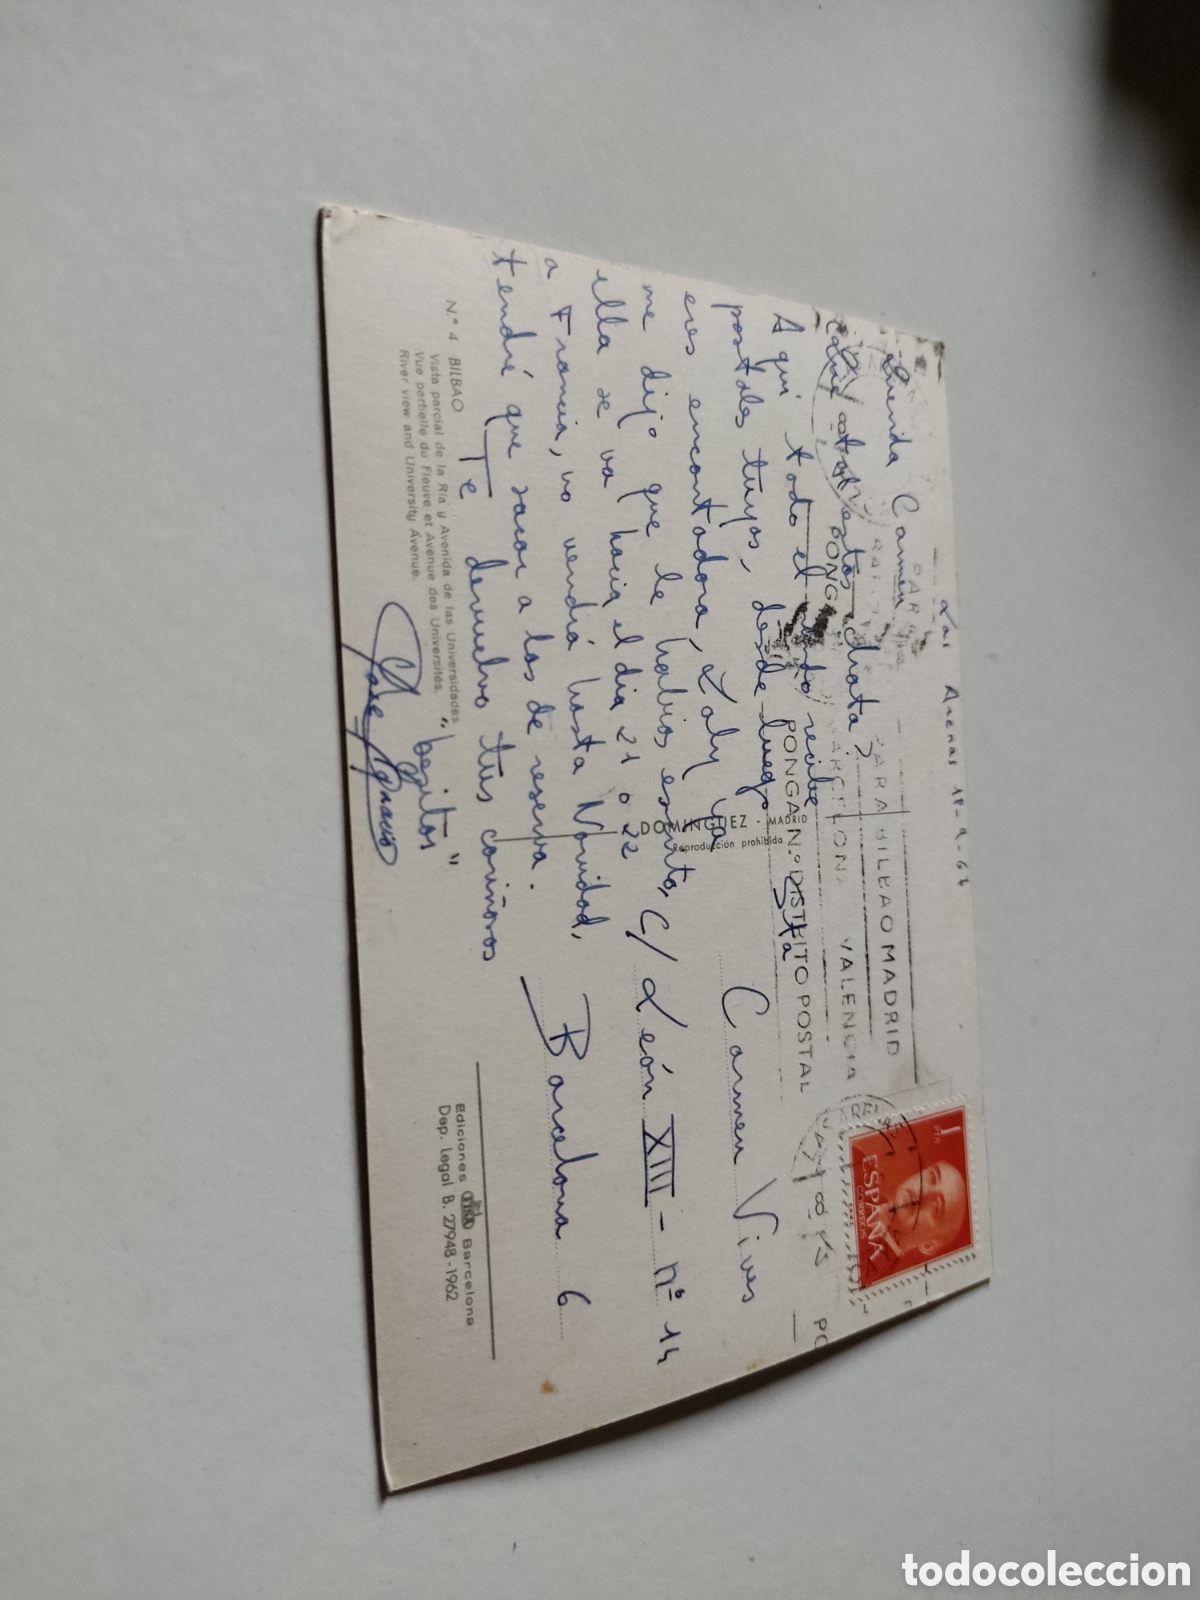 Las Arenas 18-9-62
Querida Carmen
Qué tal estás chata?
Aquí todo el mundo recibe
postales tuyas, desde luego
eres encantadora, Loly ya
me dijo que le habías escrito,
ella se va hacia el dia 21 o 22
a Francia, no vendrá hasta Navidad,
tendré que sacar a los de reserva.
Te devuelvo tus cariñosos
"besitos"
Jose Ignacio
Srta
Carmen Vives
C/ León XIII - nº 14
Barcelona 6
PARA BILBAO MADRID
BARCELONA VALENCIA
PONGA N.º DISTRITO POSTAL
1 PTA
ESPAÑA
CORREOS
DOMINGUEZ - MADRID
Reproducción prohibida
N.º 4 BILBAO
Vista parcial de la Ría y Avenida de las Universidades
Vue partielle du Fleuve et Avenue des Universités.
River view and University Avenue.
Ediciones FISA Barcelona
Dep. Legal B. 27948-1962
todocoleccion